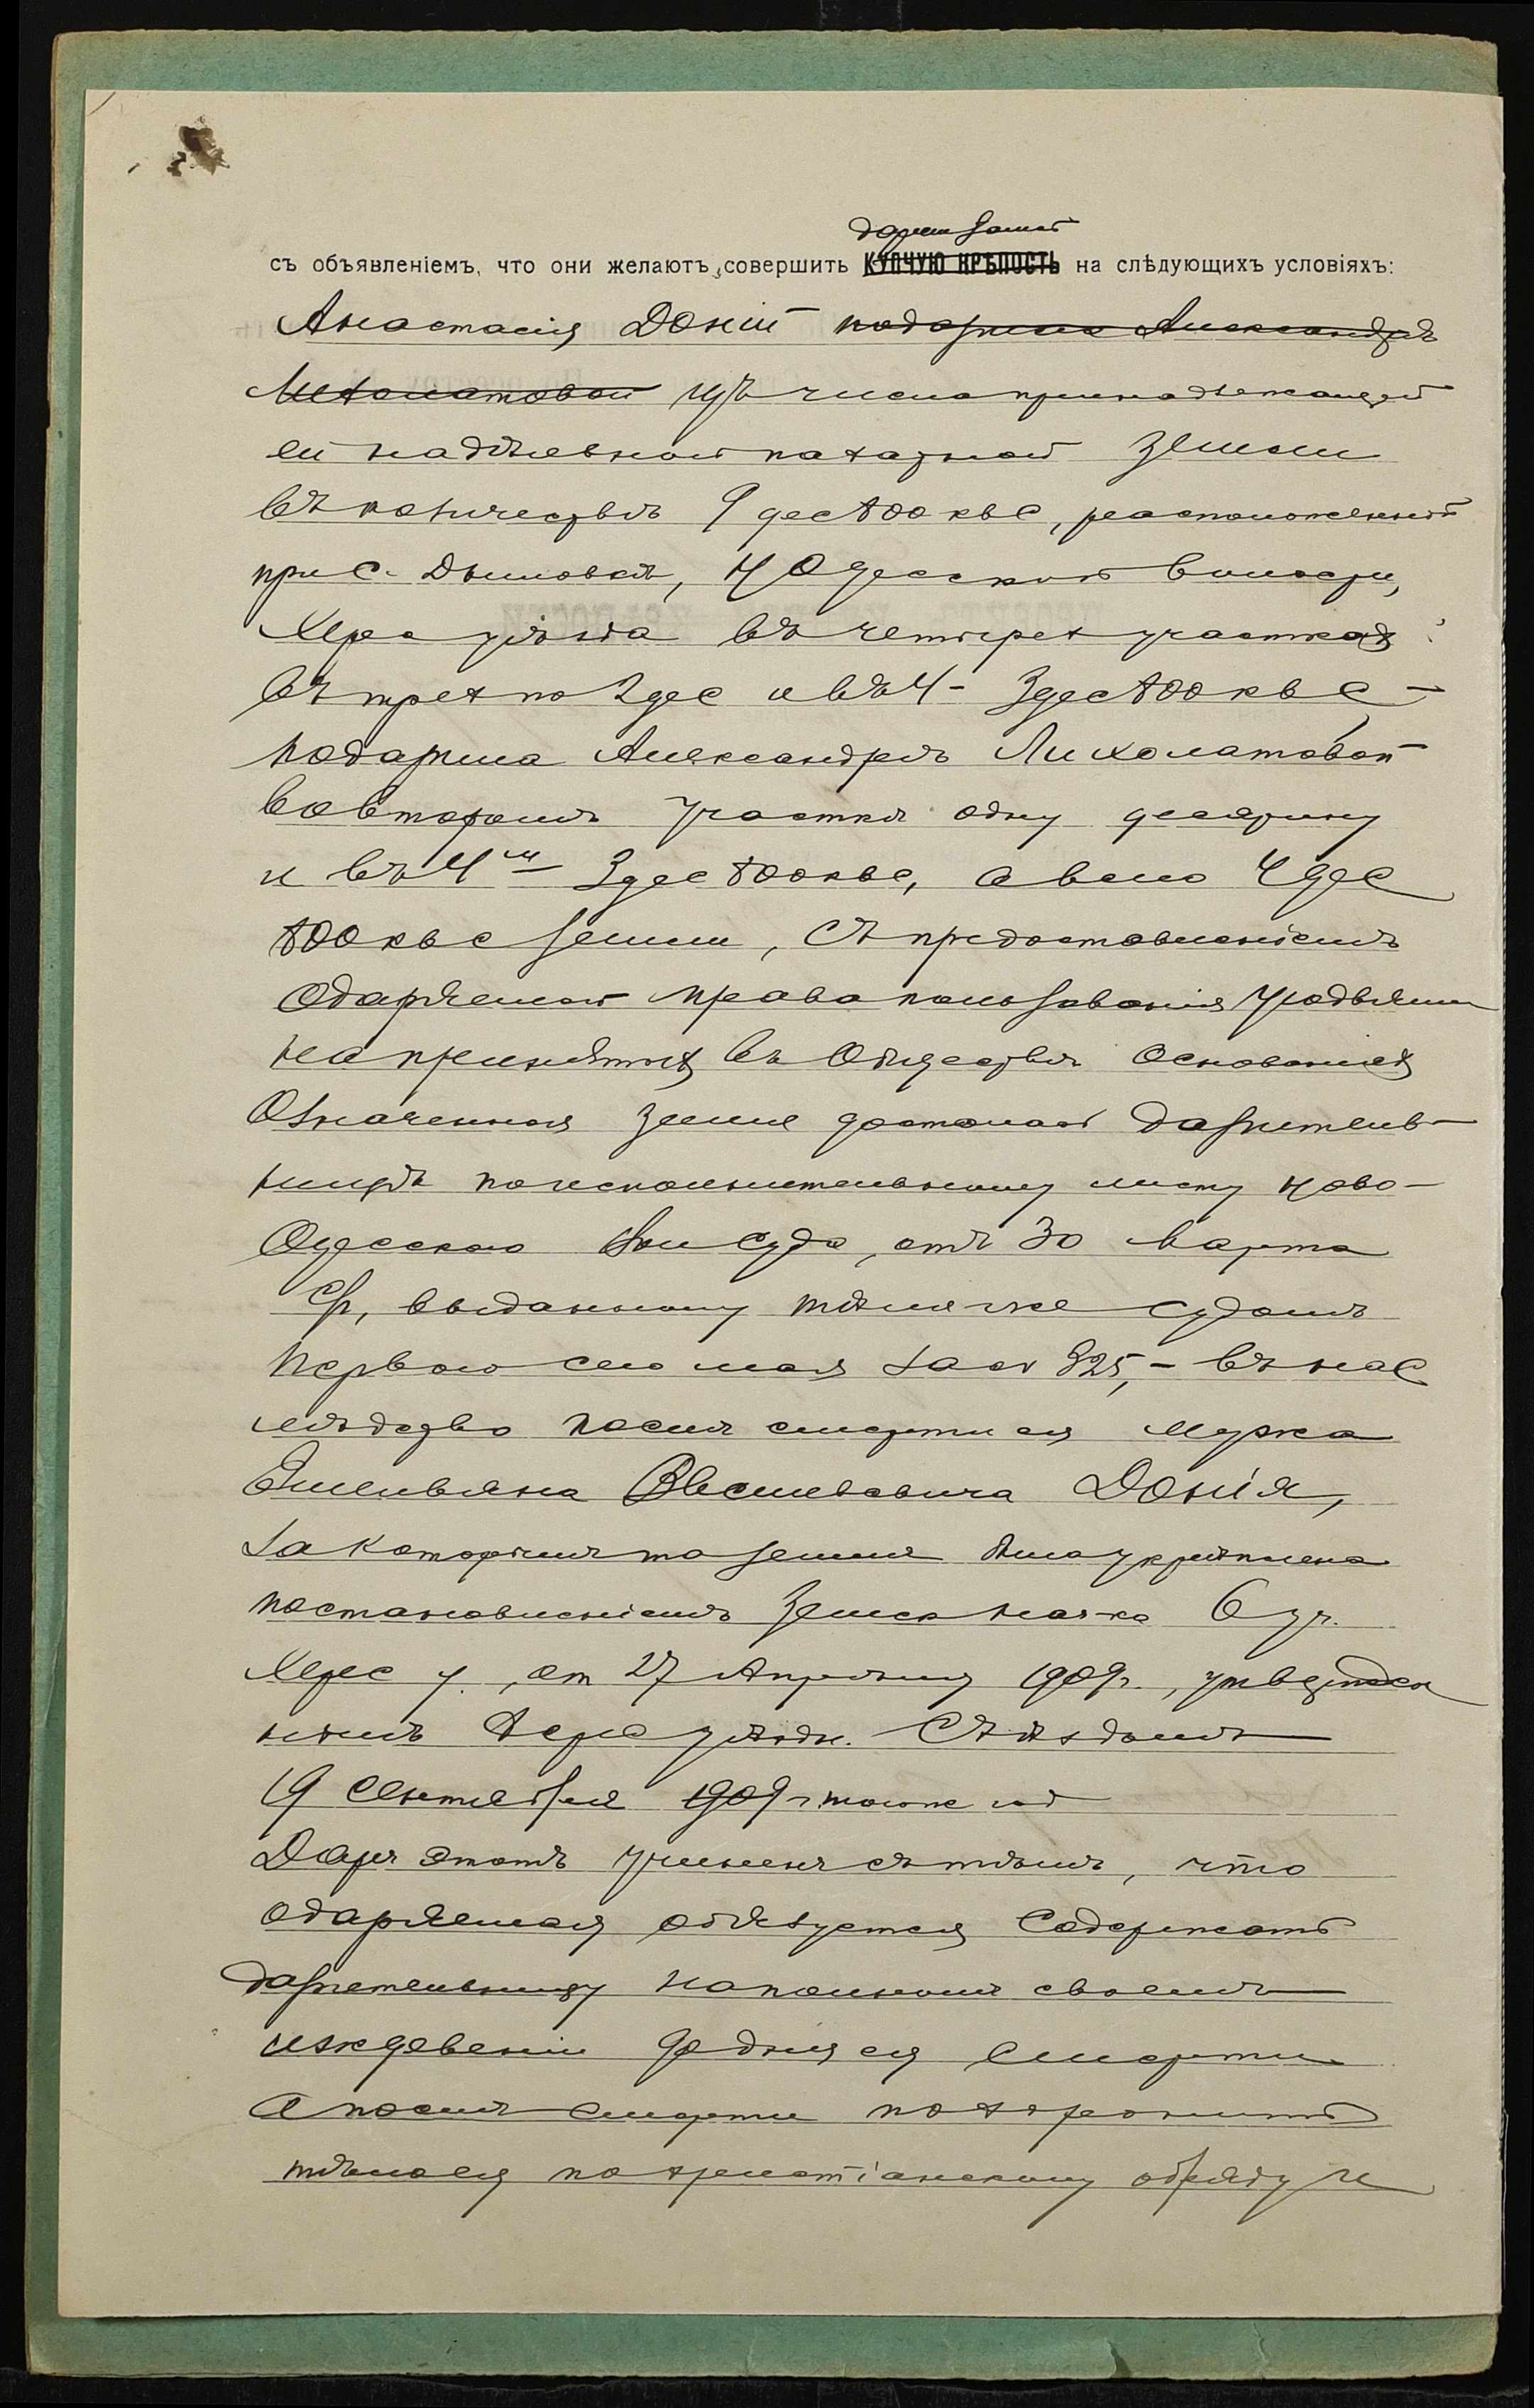 дарств запись
съ объявленіемъ, что они желаютъ совершить КУПЧУЮ КРѢПОСТЬ на слѣдующихъ условіяхъ:
Анастасія Доній подарила Александрѣ
Лихолатовой изъ числа принадлежащей
ей надѣльной пахатной земли
въ количествѣ 9 дес 800 кв с, расположенной
при с. Дымовкѣ, Н Одесской волости,
Херс уѣзда въ четырех участках:
въ трех по 2 дес и въ 4 - 3 дес 800 кв с -
подарила Александрѣ Лихолатовой
во второмъ участкѣ одну десятину
и въ 4м - 3 дес 800 кв с, а всего 4 дес
800 кв с земли, съ предоставленіемъ
одаряемой права пользованія угодьями
на принятых въ Обществѣ основаніях
Означенная земля досталась дарительницѣ
по исполнительному листу Ново-
Одесскаго Вол Суда, отъ 30 Марта
с/г, выданному тѣмъ же судомъ
Первого сего мая за № 325, - въ нас
лѣдство послѣ смерти ея мужа
Емельяна Васильевича Донія,
за которымъ та земля была укрѣплена
постановленіемъ Земск нач-ка 6 уч.
Херс у., от 27 Апрѣля 1909 г., утвержден
нымъ Херс уѣздн. Съѣздомъ
19 Сентября 1909 г того же год
Даръ этотъ учиненъ съ тѣмъ, что
одаряемая обязуется содержать
дарительницу на полномъ своемъ
иждевеніи до дня ея смерти
а послѣ смерти похоронить
тѣло ея по христіанскому обряду и